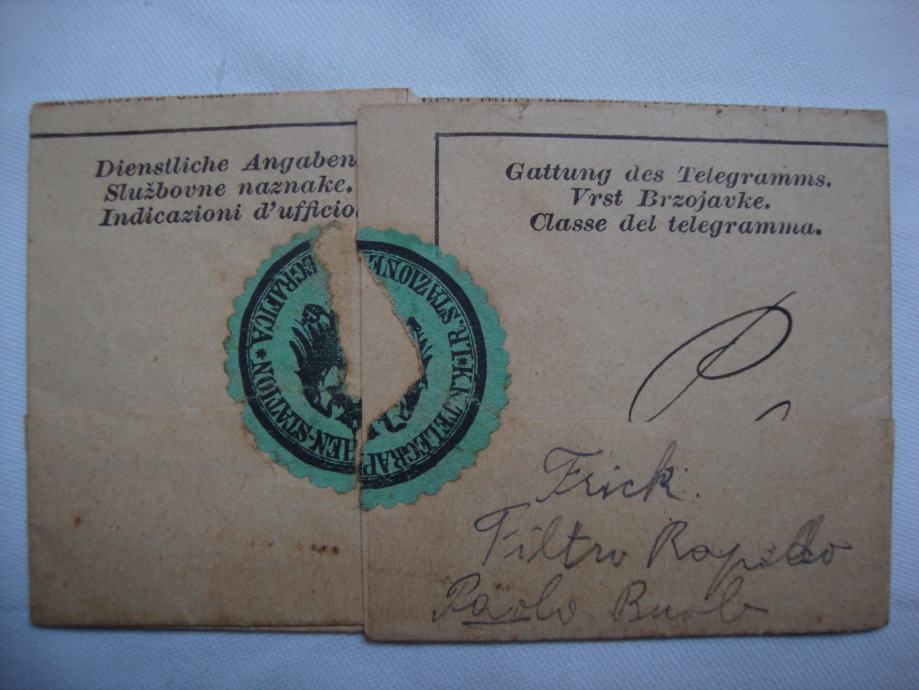 Dienstliche Angaben
Službovne naznake.
Indicazioni d'ufficio.
Gattung des Telegramms.
Vrst Brzojavke.
Classe del telegramma.
EGRAFICA * K.K. TELEGRAPHEN-STATION * I.R. STAZIONE
P
Frick.
Filtro Rapido
Paolo